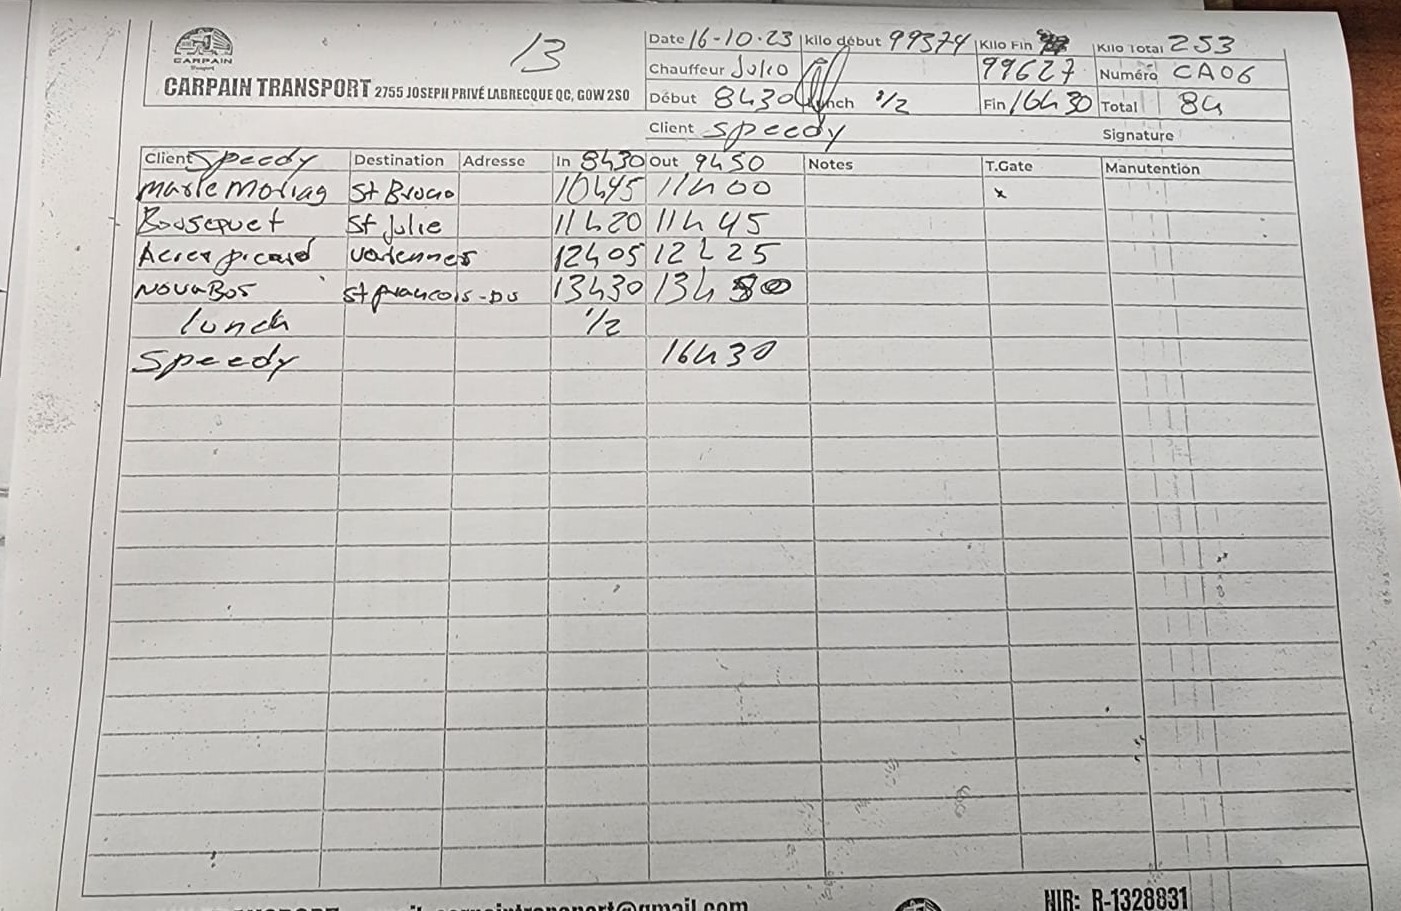 13
CARPAIN
Transport
CARPAIN TRANSPORT 2755 JOSEPH PRIVÉ LABRECQUE QC, G0W 2S0
Date 16-10-23 kilo début 99374 Kilo Fin Kilo Total 253
Chauffeur Julio 99627 Numéro CA06
Début 8h30 Lunch 1/2 Fin 16h30 Total 8h
Client Speedy Signature
Client Speedy Destination Adresse In 8h30 Out 9h50 Notes T.Gate Manutention
St Bruno 10h45 11h00 x
Bousequet St Julie 11h20 11h45
Acier picard Varennes 12h05 12h25
NovaBos St francois-Du 13h30 13h
lunch 1/2
Speedy 16h30
NIR: R-1328831